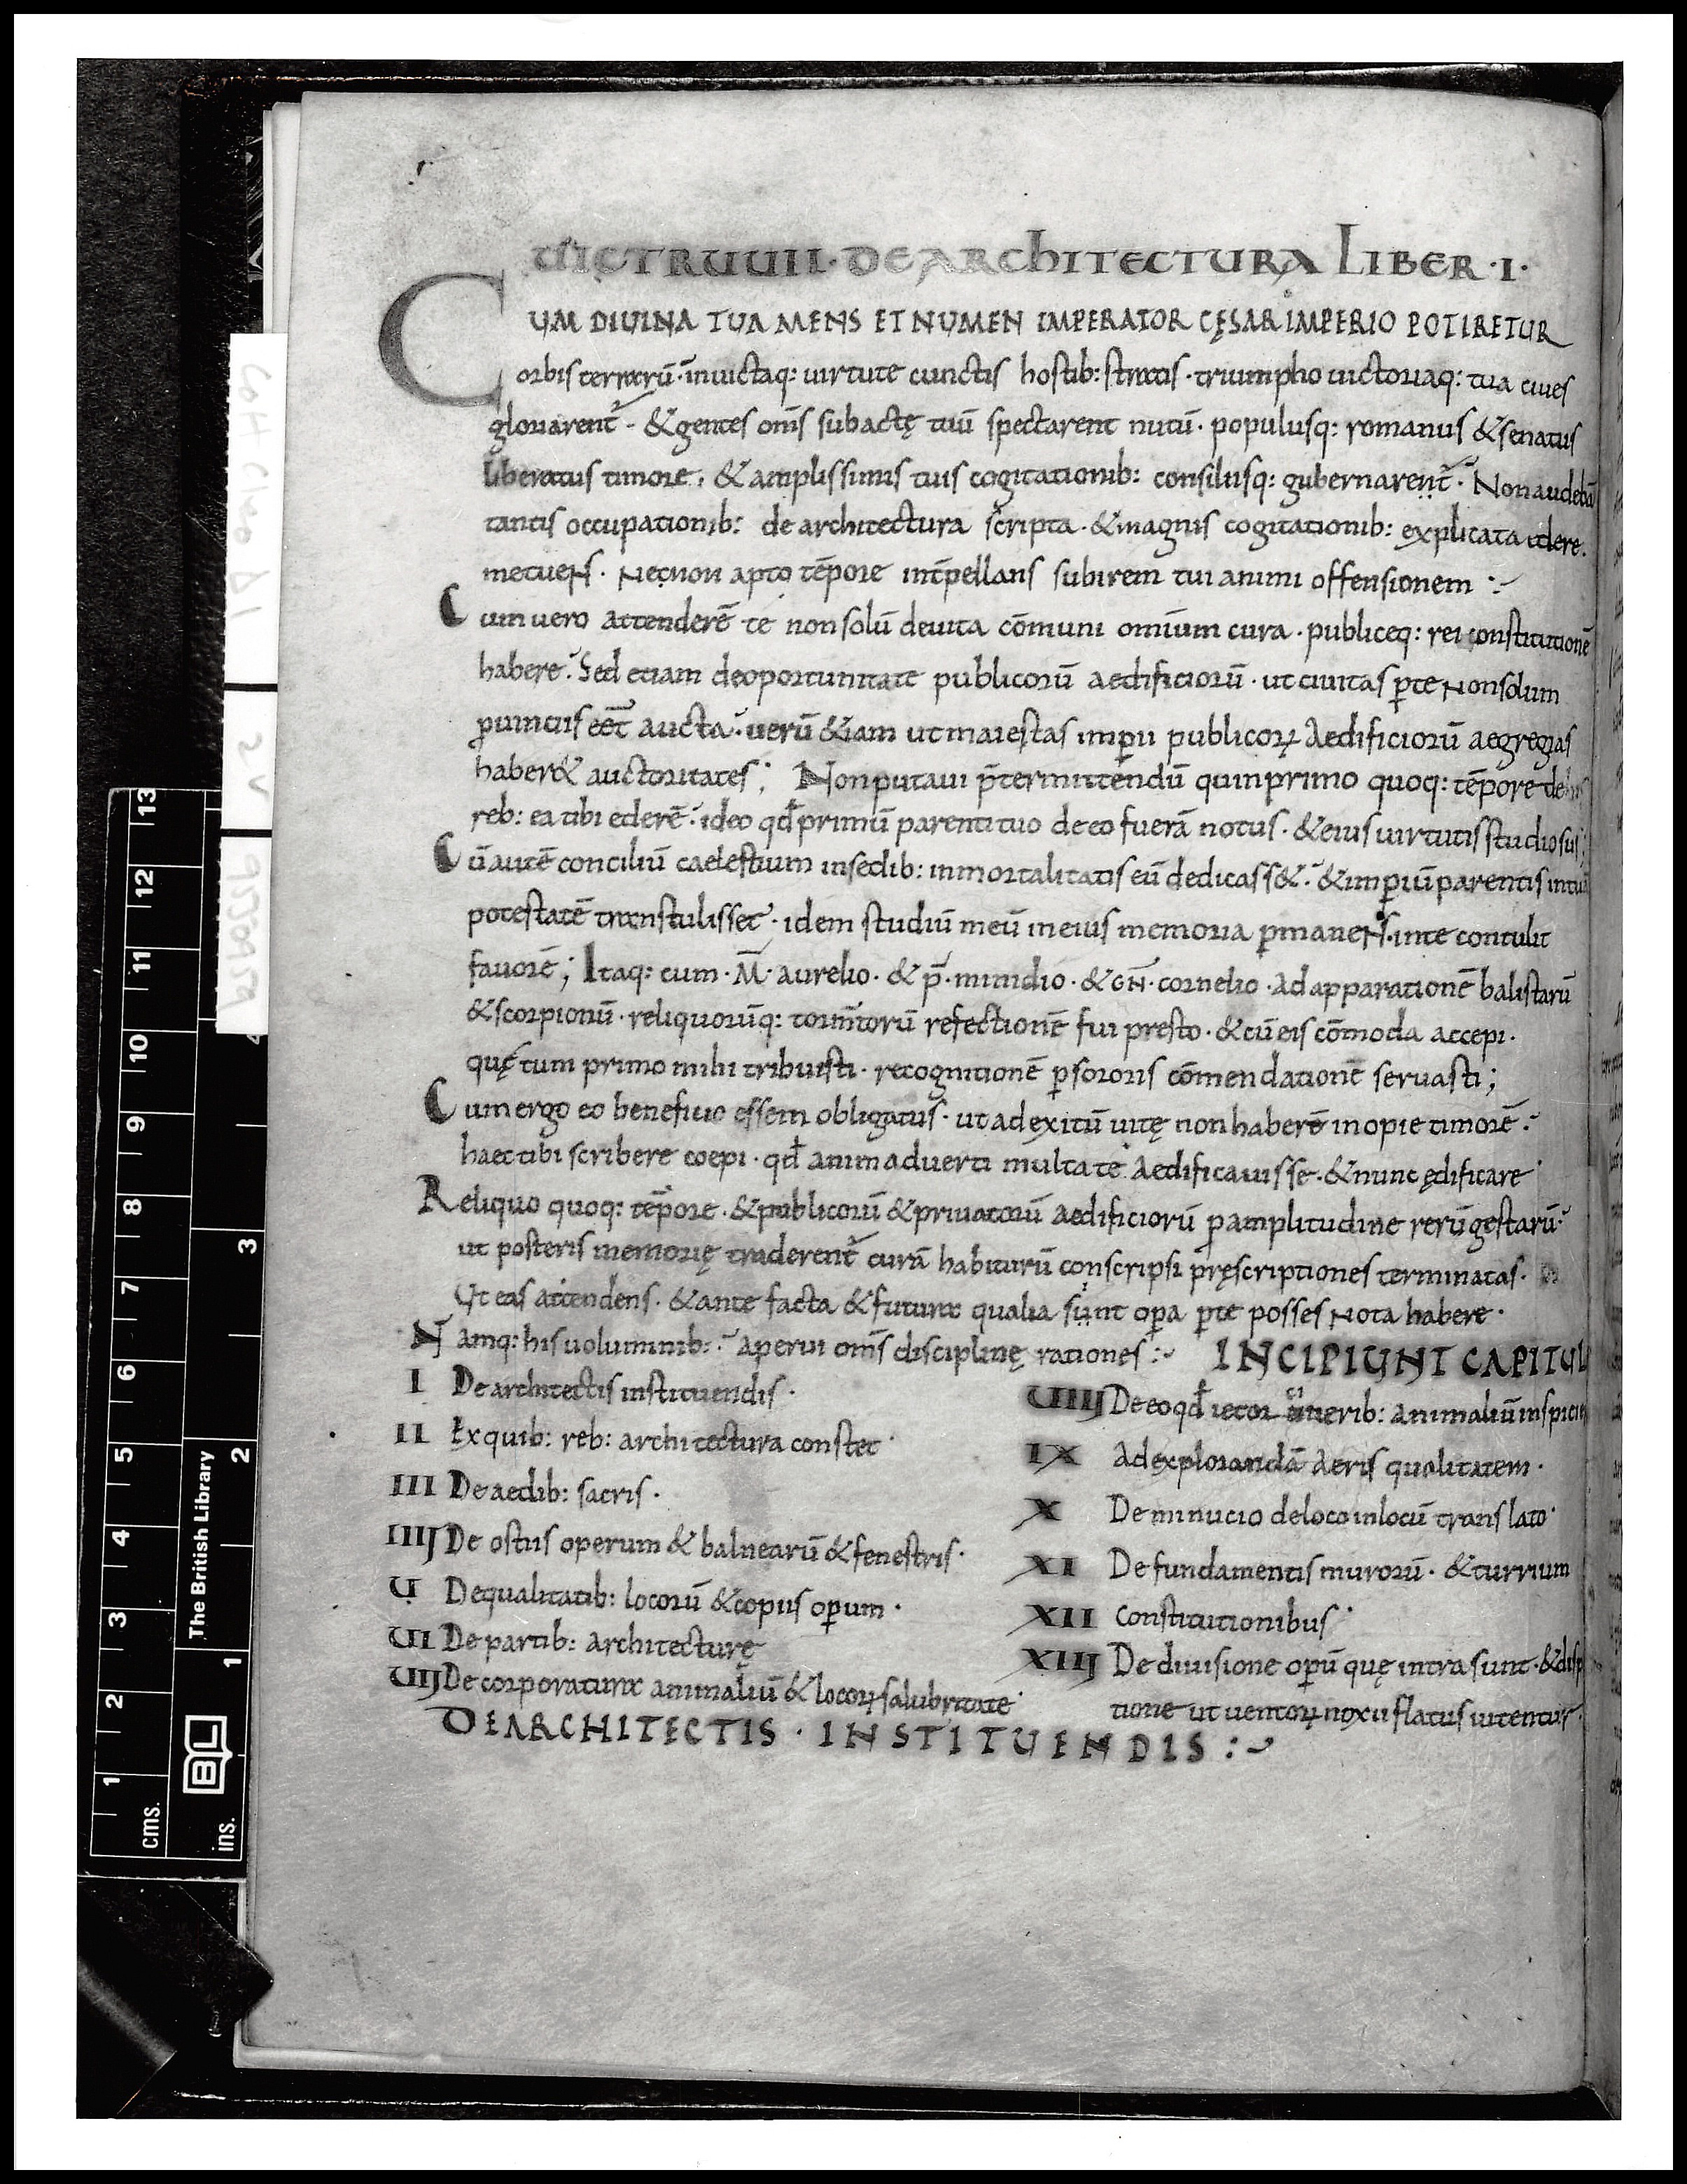 UICTRUUII · DE ARChITECTURA LIBER · I ·
CUM DIUINA TUA MENS ET NUMEN IMPERATOR CĘSAR IMPERIO POTIRETUR
orbis terrarū · inuictaq: uirtute cunctis hostib: stratis · triumpho uictoriaq: tua ciues
gloriarent̄ · & gentes om̄s subactę tuū spectarent nutū · populusq: romanus & senatus
liberatus timore · & amplissimis tuis cogitationib: consiliisq: gubernarent̄ · Non audebā
tantis occupationib: de architectura scripta · & magnis cogitationib: explicata edere ·
metuens · Nec non apto tēpore int̄pellans subirem tui animi offensionem :~
Cum uero attenderē te non solū de uita cōmuni omnium cura · publiceq: rei constitutionē
habere · Sed etiam de oportunitate publicorū aedificiorū · ut ciuitas p̱ te non solum
p̱uinciis eēt aucta · uerū &iam ut maiestas imp̱ii publicorꝝ aedificiorū aegregias
haber& auctoritates ; Non putaui p̄termittendū quin primo quoq: tēpore de his
reb: ea tibi ederē · ideo qđ primū parenti tuo de eo fuerā notus · & eius uirtutis studiosus ;
Cū autē conciliū caelestium in sedib: inmortalitatis eū dedicass& · & imp̱iū parentis in tuā
potestatē transtulisset · idem studiū meū in eius memoria p̱manens · in te contulit
fauorē ; Itaq: cum · M̄ · aurelio · & p̄ · minidio · & GN · cornelio · ad apparationē balistarū
& scorpionū · reliquorūq: torm̄torū refectionē fui presto · & cū eis cōmoda accepi ·
quę tum primo mihi tribuisti · recognitionē p̱ sororis cōmendationē seruasti ;
Cum ergo eo beneficio essem obligatus · ut ad exitū uitę non haberē inopie timorē ·
haec tibi scribere coepi · qđ animaduerti multa te aedificauisse · & nunc ędificare
Reliquo quoq: tēpore · & publicorū & priuatorū aedificiorū p̱ amplitudine rerū gestarū ·
ut posteris memorię traderent̄ curā habiturū conscripsi pręscriptiones terminatas ·
Ut eas attendens · & ante facta & futura qualia sunt op̱a p̱ te posses nota habere ·
Namq: his uoluminib: · aperui om̄s disciplinę rationes :~ INCIPIUNT CAPITUL
I De architectis instituendis ·
II Ex quib: reb: architectura constet ·
III De aedib: sacris ·
IIIJ De ostiis operum & balnearū & fenestris ·
U De qualitatib: locorū & copiis op̱um ·
UI De partib: architecturę
UIJ De corporatura animaliū & locorꝝ salubritate ·
UIIJ De eo qđ iecor animaliū inspici
IX Ad explorandā aeris qualitatem ·
X De minucio de loco in locū translato ·
XI De fundamentis murorū · & turrium
XII constitutionibus ·
XIIJ De diuisione op̱ū quę intra sunt · & disp
tione ut uentorꝝ noxii flatus uitentur ·
DE ARCHITECTIS · INSTITUENDIS :~
13
12
11
10
9
8
7
6
5
4
3
2
1
cms.
3
2
1
ins.
The British Library
BL